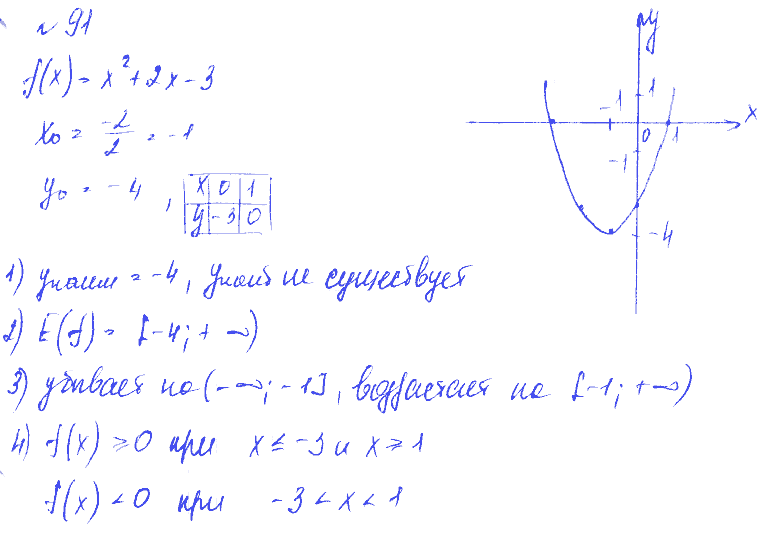 № 91
f(x) = x² + 2x - 3
x₀ = -2/2 = -1
y₀ = -4,
x 0 1
y -3 0
1) yнаим = -4, yнаиб не существует
2) E(f) = [-4; +∞)
3) убывает на (-∞; -1], возрастает на [-1; +∞)
4) f(x) ≥ 0 при x ≤ -3 и x ≥ 1
f(x) < 0 при -3 < x < 1
y
-1 1
x
0 1
-1
-4